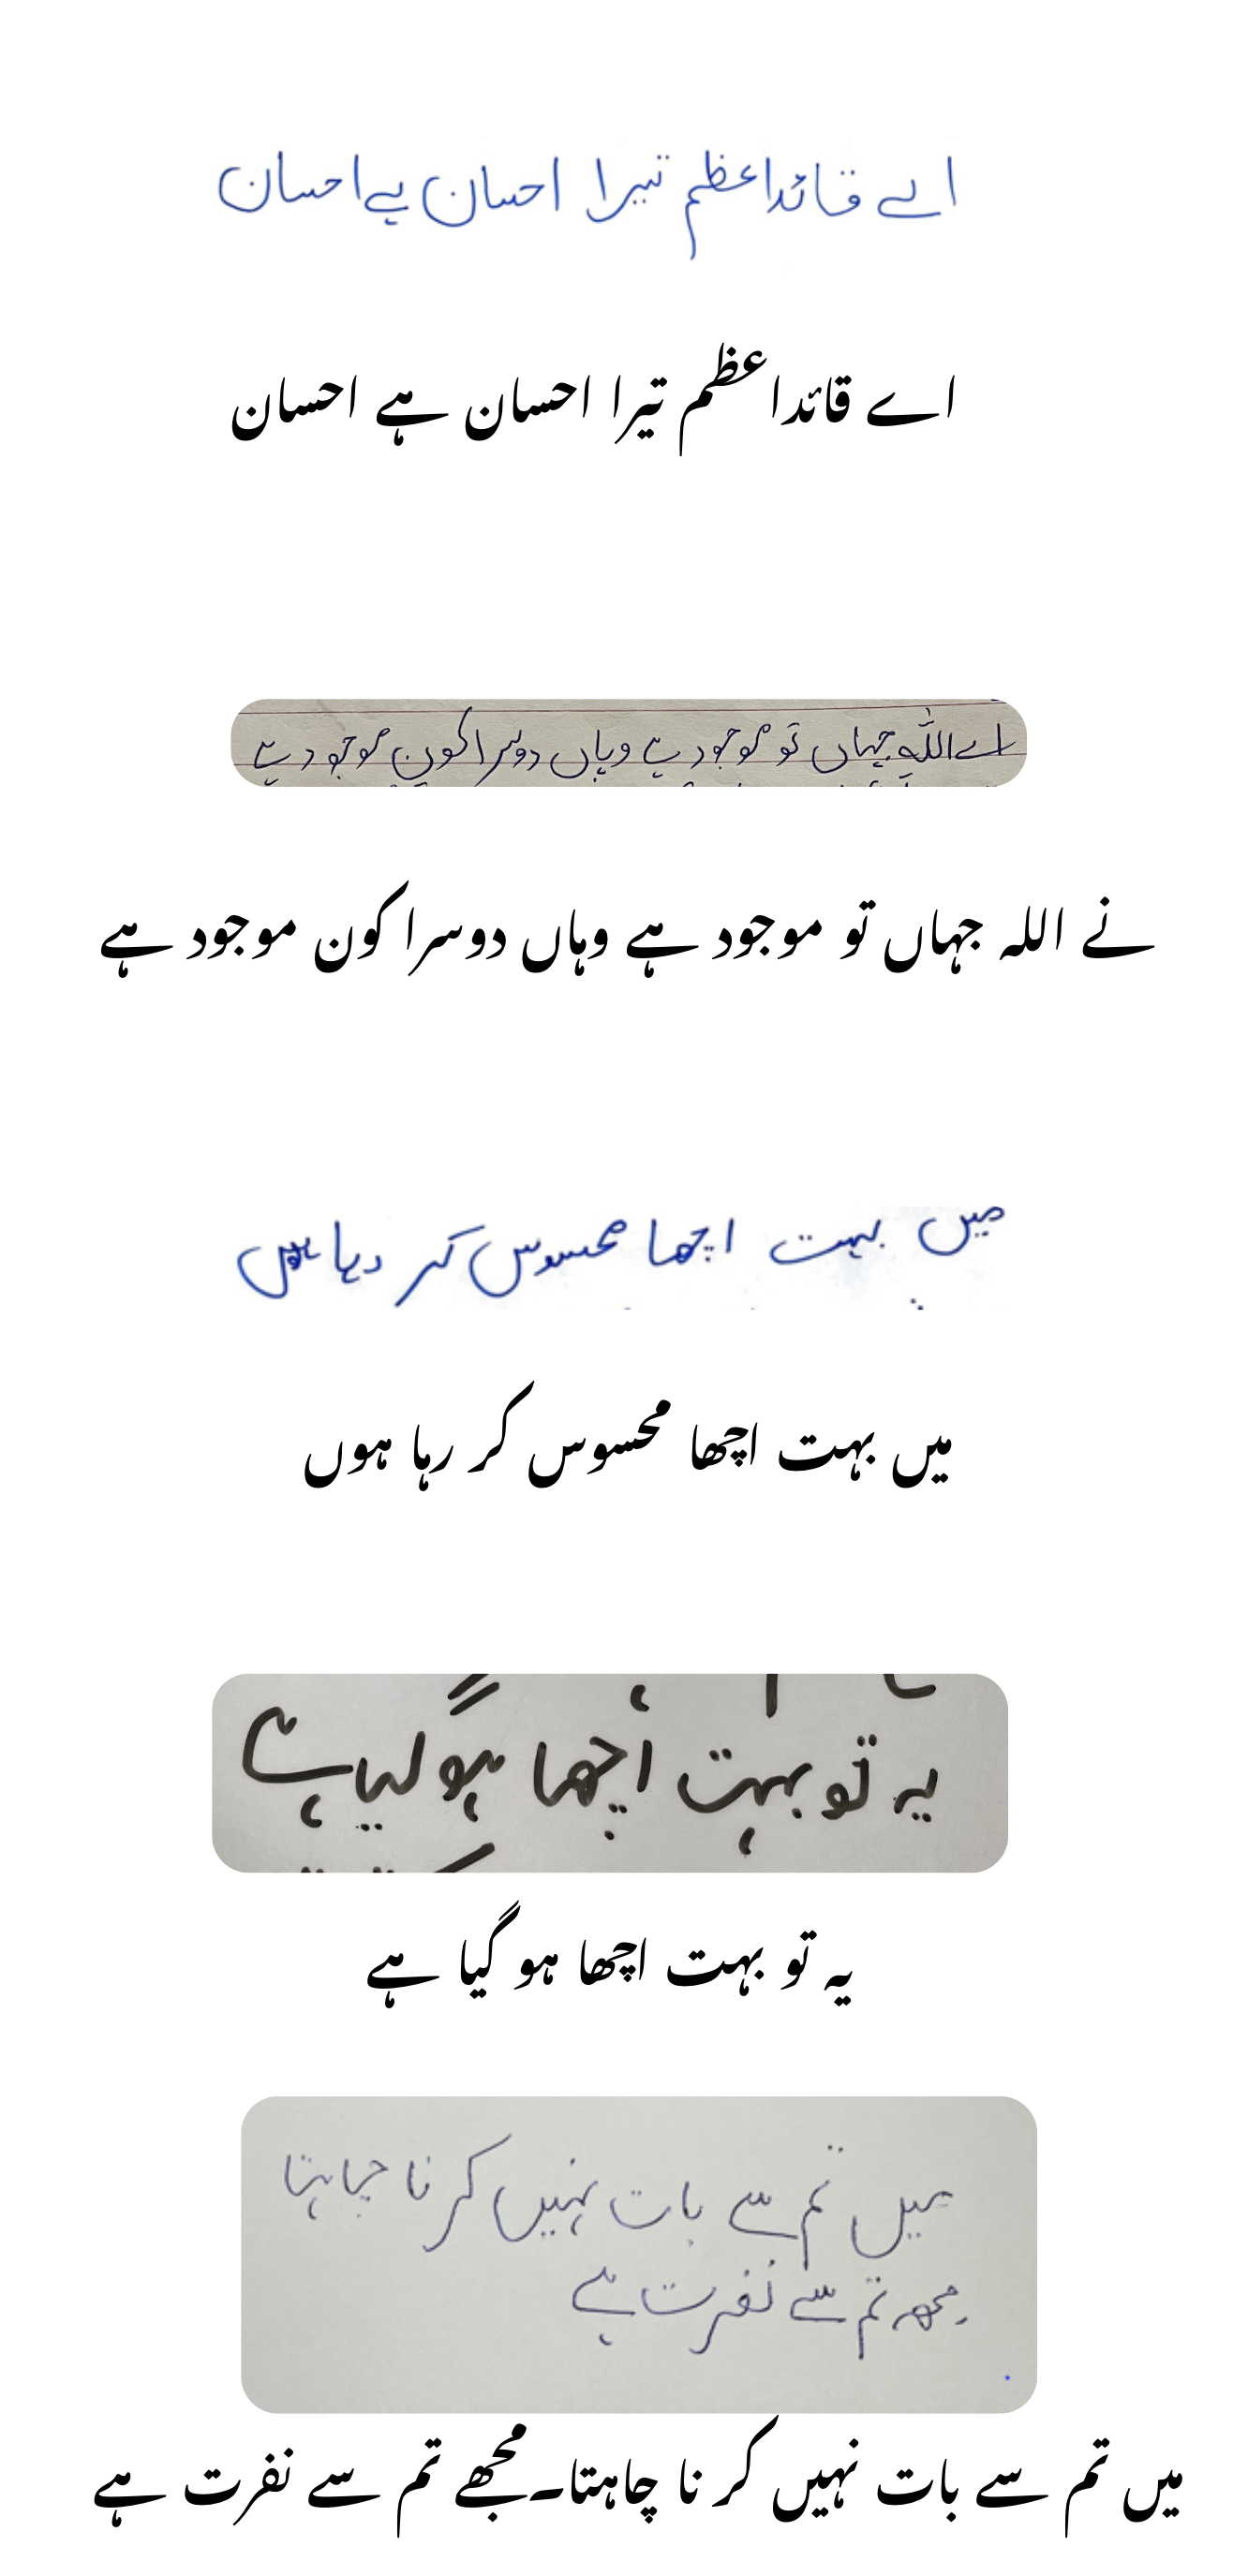 اے قائداعظم تیرا احسان ہے احسان
اے قائداعظم تیرا احسان ہے احسان
اے اللہ جہاں تو موجود ہے وہاں دوسرا کون موجود ہے
نے اللہ جہاں تو موجود ہے وہاں دوسرا کون موجود ہے
میں بہت اچھا محسوس کر رہا ہوں
میں بہت اچھا محسوس کر رہا ہوں
یہ تو بہت اچھا ہو گیا ہے
یہ تو بہت اچھا ہو گیا ہے
میں تم سے بات نہیں کرنا چاہتا
مجھے تم سے نفرت ہے
میں تم سے بات نہیں کر نا چاہتا۔مجھے تم سے نفرت ہے